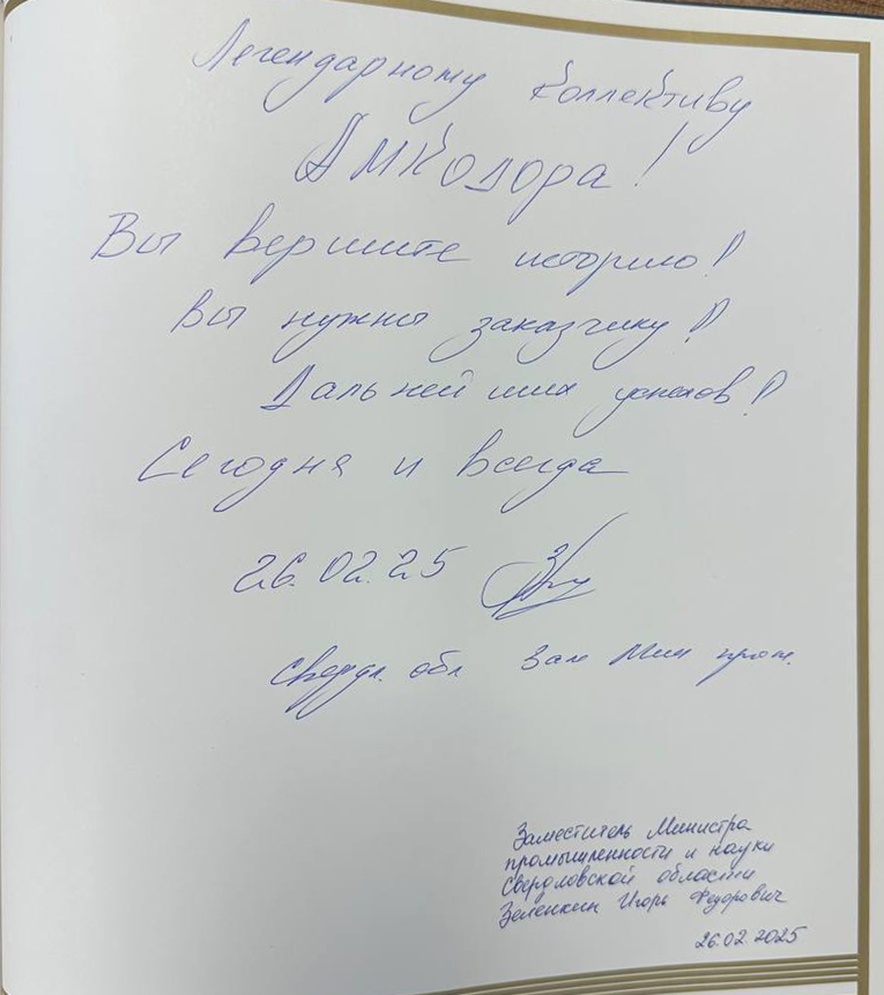 Легендарному коллективу
Амкодора!
Вы вершите историю!
Вы нужны заказчику!
Дальнейших успехов!
Сегодня и всегда
26.02.25
Свердл. обл Зам Мин пром.
Заместитель Министра
промышленности и науки
Свердловской области
Зеленкин Игорь Федорович
26.02.2025